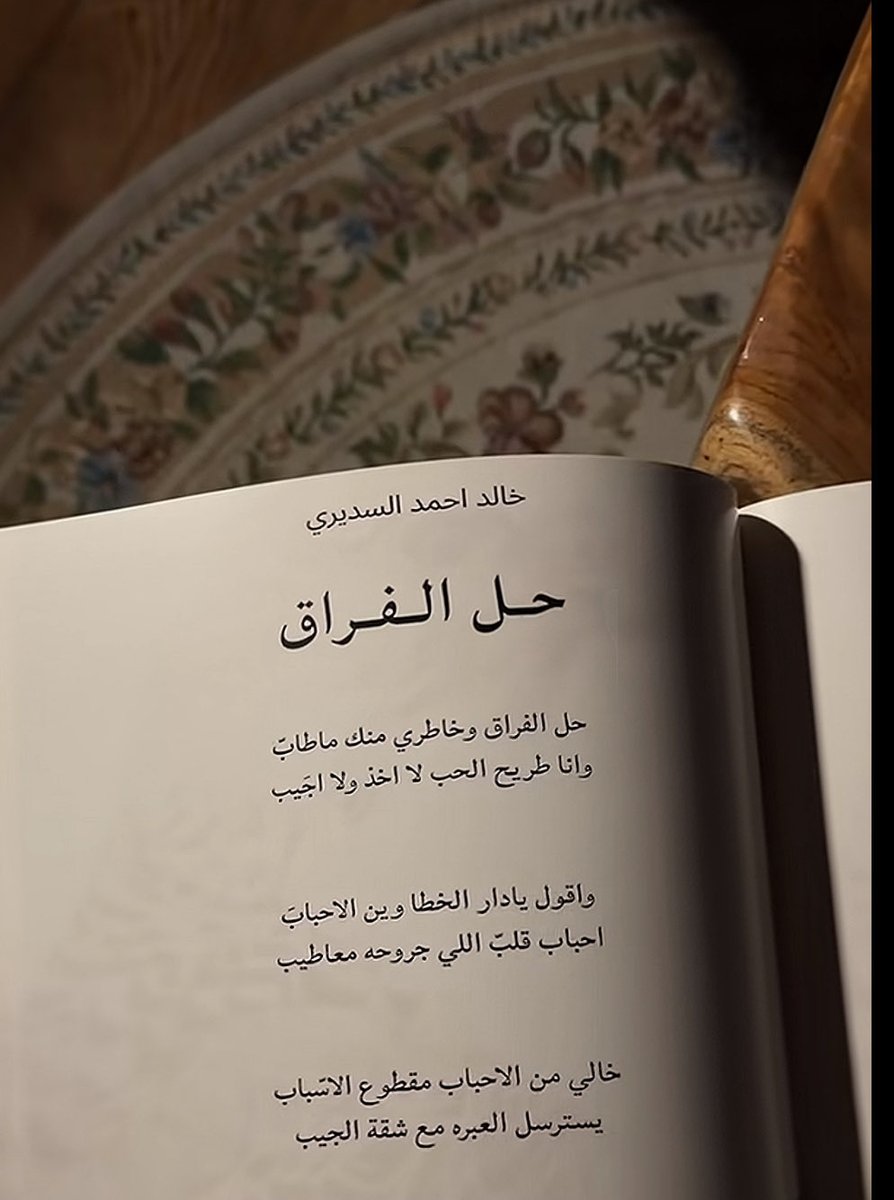 خالد احمد السديري
حل الفراق
حل الفراق وخاطري منك ماطابّ
وانا طريح الحب لا اخذ ولا اجَيب
واقول يادار الخطا وين الاحبابَ
احباب قلبّ اللي جروحه معاطيب
خالي من الاحباب مقطوع الاسّباب
يسترسل العبره مع شقة الجيب